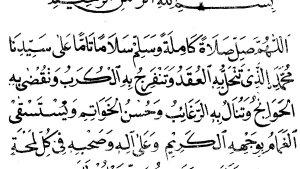 اَللّٰهُمَّ صَلِّ صَلَاةً كَامِلَةً وَسَلِّمْ سَلَامًا تَامًّا عَلَى سَيِّدِنَا
مُحَمَّدِ الَّذِى تَنْحَلُّ بِهِ الْعُقَدُ وَتَنْفَرِجُ بِهِ الْكُرَبُ وَتُقْضٰى بِهِ
الْحَوَائِجُ وَتُنَالُ بِهِ الرَّغَائِبُ وَحُسْنُ الْخَوَاتِمِ وَيُسْتَسْقَى
الْغَمَامُ بِوَجْهِهِ الْكَرِيْمِ وَعَلٰى اٰلِهِ وَصَحْبِهِ فِى كُلِّ لَمْحَةٍ